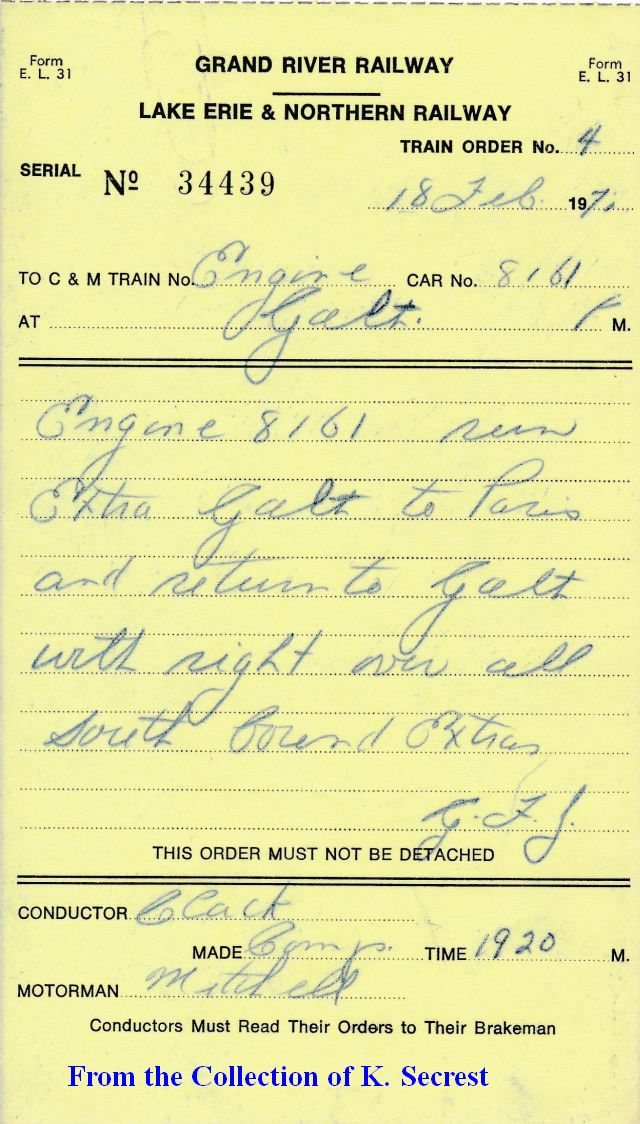 Form
E. L. 31
GRAND RIVER RAILWAY
Form
E. L. 31
LAKE ERIE & NORTHERN RAILWAY
TRAIN ORDER No. 4
SERIAL No 34439
18 Feb. 1971
TO C & M TRAIN No. Engine CAR No. 8161
AT Galt. M.
Engine 8161 run
Extra Galt to Paris
and return to Galt
with right over all
South bound Extras
G. F. J.
THIS ORDER MUST NOT BE DETACHED
CONDUCTOR Clack
MADE Comp. TIME 1920 M.
MOTORMAN Mitchell
Conductors Must Read Their Orders to Their Brakeman
From the Collection of K. Secrest